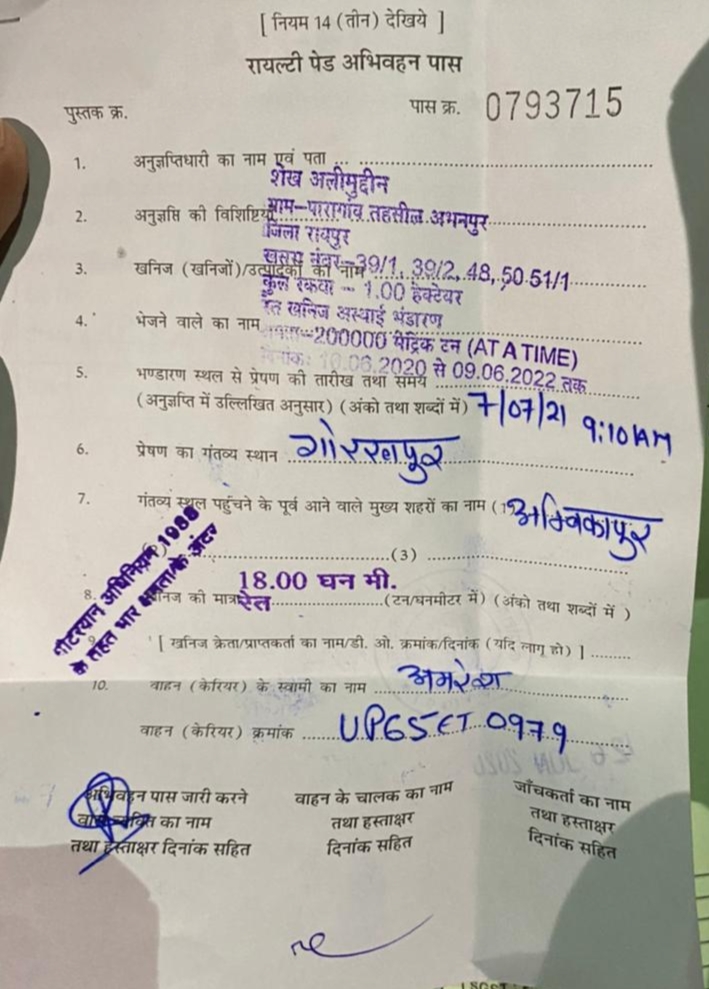 [ नियम 14 (तीन) देखिये ]
रायल्टी पेड अभिवहन पास
पुस्तक क्र. पास क्र. 0793715
1. अनुज्ञप्तिधारी का नाम एवं पता ... ........
शेख अलीमुद्दीन
2. अनुज्ञप्ति की विशिष्टियां ग्राम-पारागांव तहसील अभनपुर
जिला रायपुर
3. खनिज (खनिजों)/उत्पादकों का नाम खसरा नंबर-39/1, 39/2, 48, 50.51/1
कुल रकबा - 1.00 हेक्टेयर
रेत खनिज अस्थाई भंडारण
4. भेजने वाले का नाम -200000 मैट्रिक टन (AT A TIME)
दिनांक: 10.06.2020 से 09.06.2022 तक
5. भण्डारण स्थल से प्रेषण की तारीख तथा समय ........
(अनुज्ञप्ति में उल्लिखित अनुसार) (अंको तथा शब्दों में) 7/07/21 9:10 AM
6. प्रेषण का गंतव्य स्थान गोरखपुर
7. गंतव्य स्थल पहुंचने के पूर्व आने वाले मुख्य शहरों का नाम (1) अम्बिकापुर
........(3) ........
मोटरयान अधिनियम 1988
के तहत भार क्षमता के अंदर
18.00 घन मी.
8. खनिज की मात्रा रेत ........(टन/घनमीटर में) (अंको तथा शब्दों में )
9. [ खनिज क्रेता/प्राप्तकर्ता का नाम/डी. ओ. क्रमांक/दिनांक (यदि लागू हो) ] ......
10. वाहन (केरियर) के स्वामी का नाम अमरेश
वाहन (केरियर) क्रमांक ...... UP65ET 0979
अभिवहन पास जारी करने वाहन के चालक का नाम जाँचकर्ता का नाम
वाले व्यक्ति का नाम तथा हस्ताक्षर तथा हस्ताक्षर
तथा हस्ताक्षर दिनांक सहित दिनांक सहित दिनांक सहित